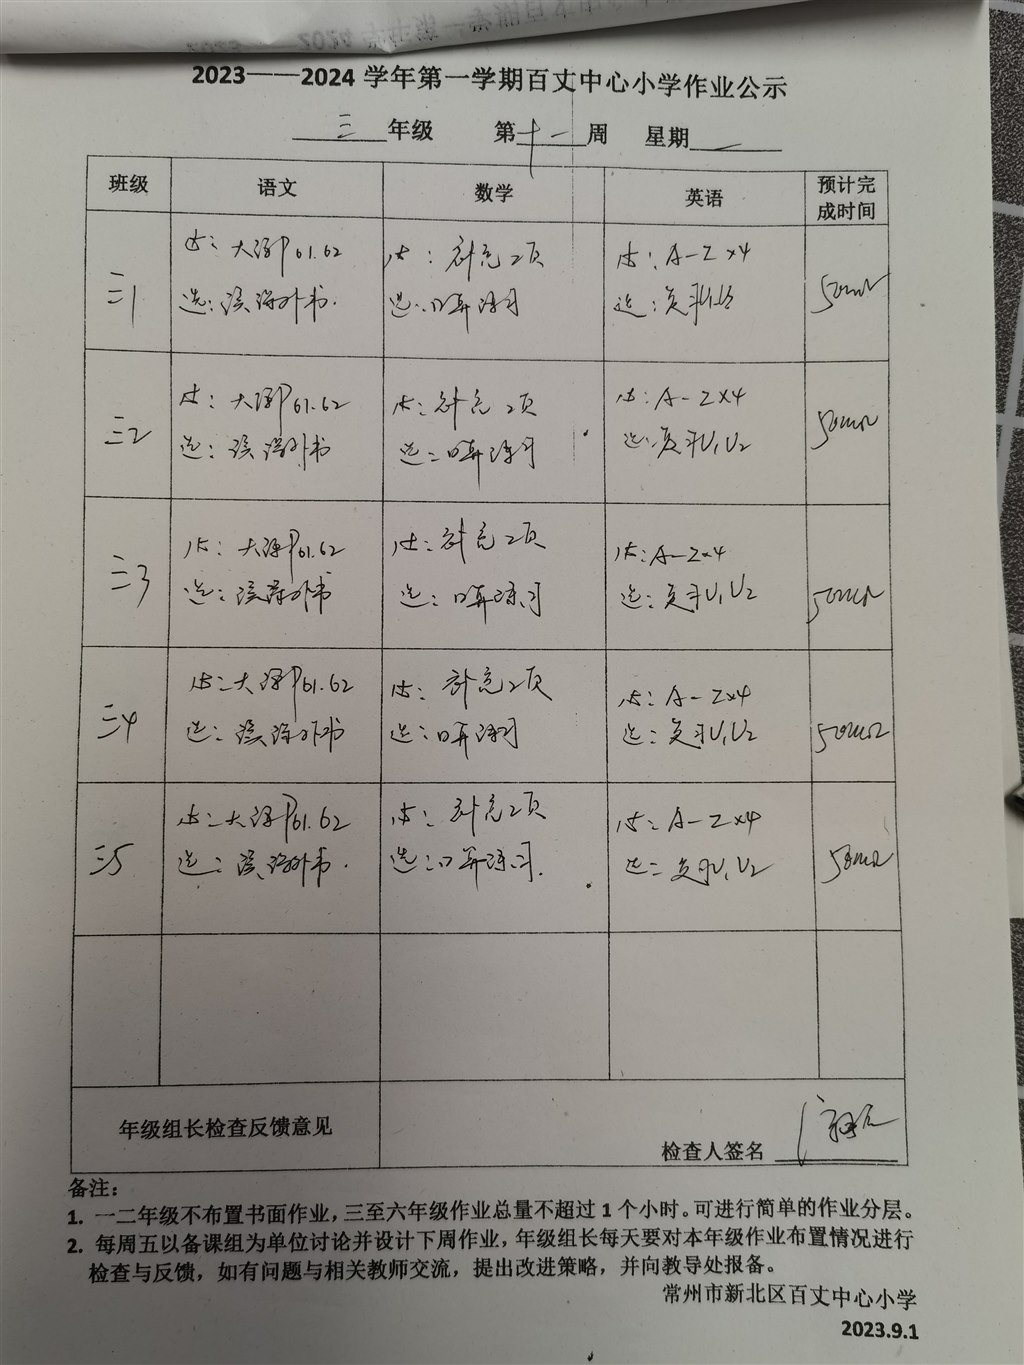 2023——2024 学年第一学期百丈中心小学作业公示
三 年级 第 十一 周 星期 一
班级 语文 数学 英语 预计完成时间
三1
必：大练P61.62
选：读课外书.
必：补充2页
选：口算练习
必：A-Z×4
选：复习U1U2
50min
三2
必：大练P61.62
选：读课外书
必：补充2页
选：口算练习
必：A-Z×4
选：复习U1U2
50min
三3
必：大练P61.62
选：读课外书
必：补充2页
选：口算练习
必：A-Z×4
选：复习U1U2
50min
三4
必：大练P61.62
选：读课外书
必：补充2页
选：口算练习
必：A-Z×4
选：复习U1U2
50min
三5
必：大练P61.62
选：读课外书.
必：补充2页
选：口算练习.
必：A-Z×4
选：复习U1U2
50min
年级组长检查反馈意见
检查人签名
备注：
1. 一二年级不布置书面作业，三至六年级作业总量不超过 1 个小时。可进行简单的作业分层。
2. 每周五以备课组为单位讨论并设计下周作业，年级组长每天要对本年级作业布置情况进行
检查与反馈，如有问题与相关教师交流，提出改进策略，并向教导处报备。
常州市新北区百丈中心小学
2023.9.1